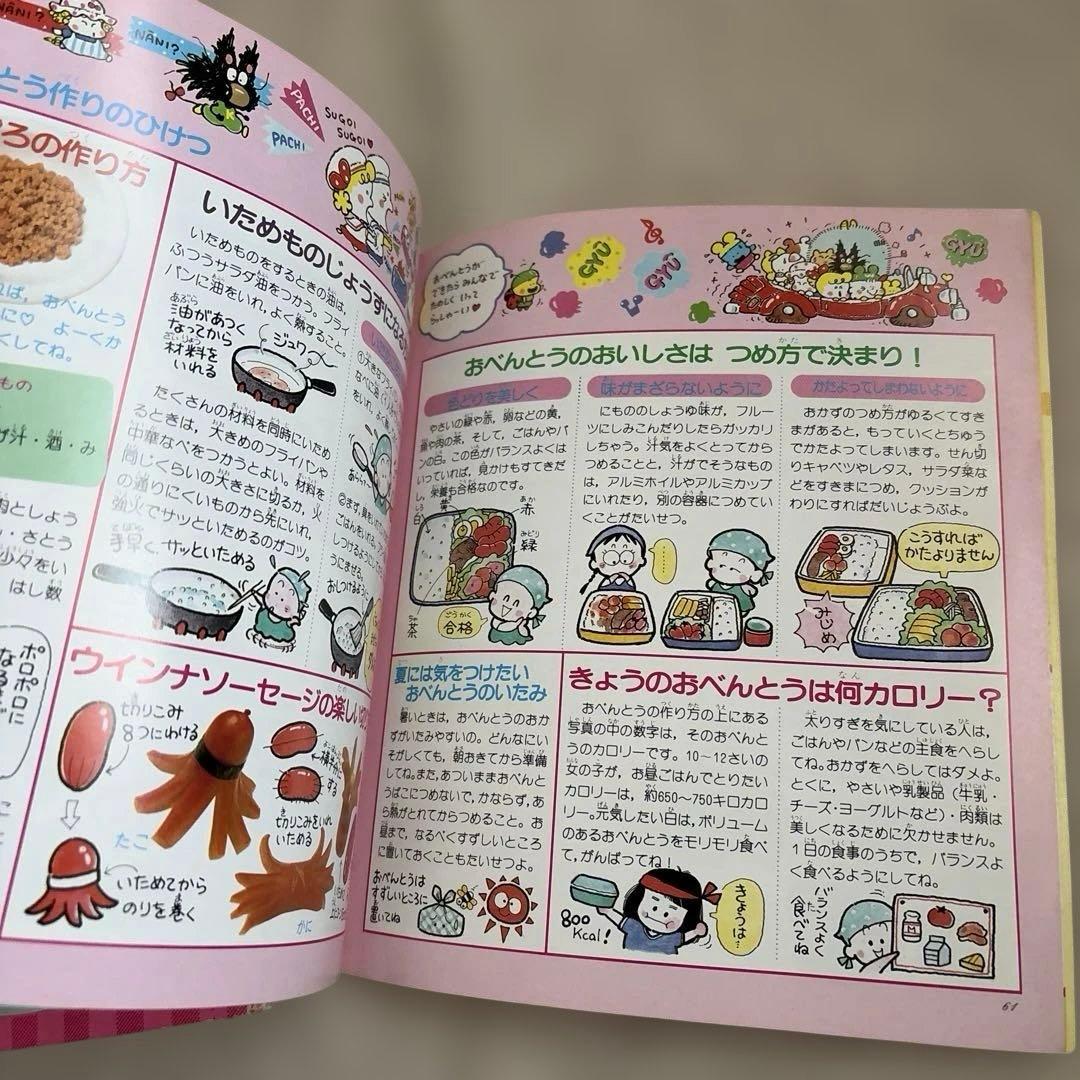 NANI?
NANI?
PACHI
PACHI
SUGOI
SUGOI♡
とう作りのひけつ
ろの作り方
ば、おべんとう
に♡ よーくか
くしてね。
もの
げ汁・酒・み
肉としよう
・さとう
少々をい
はし数
ポロポロに
いためものじょうずになる
いためものをするときの油は、
ふつうサラダ油をつかう。フライ
パンに油をいれ、よく熱すること。
油があつく
なってから
材料を
いれる
ジュワ〜
たくさんの材料を同時にいため
るときは、大きめのフライパンや
中華なべをつかうとよい。材料を
同じくらいの大きさに切るか、火
の通りにくいものから先にいれ、
強火でサッといためるのがコツ。
手早く、サッといためる
ウインナソーセージの楽しい
切りこみ
8つにわける
たこ
いためてから
のりを巻く
切りこみをいれ
いためる
かに
おべんとうが
できたらみんなで
たのしくいって
らっしゃーい♡
GYŪ
GYŪ
GYŪ
おべんとうのおいしさは つめ方で決まり!
色どりを美しく
やさいの緑や赤、卵などの黄、
肉の茶、そして、ごはんやパ
ンの白。この色がバランスよくは
いっていれば、見かけもすてきだ
し、栄養も合格なのです。
白
黄
赤
緑
茶
合格
味がまざらないように
にもののしょうゆ味が、フルー
ツにしみこんだりしたらガッカリ
しちゃう。汁気をよくとってから
つめることと、汁がでそうなもの
は、アルミホイルやアルミカップ
にいれたり、別の容器につめてい
くことがたいせつ。
かたよってしまわないように
おかずのつめ方がゆるくてすき
まがあると、もっていくとちゅう
でかたよってしまいます。せん切
りキャベツやレタス、サラダ菜な
どをすきまにつめ、クッションが
わりにすればだいじょうぶよ。
こうすれば
かたよりません
みじめ
夏には気をつけたい
おべんとうのいたみ
暑いときは、おべんとうのおか
ずがいたみやすいの。どんなにい
そがしくても、朝おきてから準備
してね。また、あついままおべんと
うばこにつめないで、かならず、あ
ら熱がとれてからつめること。お
昼まで、なるべくすずしいところ
に置いておくこともたいせつよ。
おべんとうは
すずしいところに
置いてね
きょうのおべんとうは何カロリー?
おべんとうの作り方の上にある
写真の中の数字は、そのおべんと
うのカロリーです。10〜12さいの
女の子が、お昼ごはんでとりたい
カロリーは、約650〜750キロカロ
リー。元気したい日は、ボリューム
のあるおべんとうをモリモリ食べ
て、がんばってね!
800
Kcal!
きょうは…
太りすぎを気にしている人は、
ごはんやパンなどの主食をへらし
てね。おかずをへらしてはダメよ。
とくに、やさいや乳製品(牛乳・
チーズ・ヨーグルトなど)・肉類は
美しくなるために欠かせません。
1日の食事のうちで、バランスよ
く食べるようにしてね。
バランスよく
食べてね
M
61